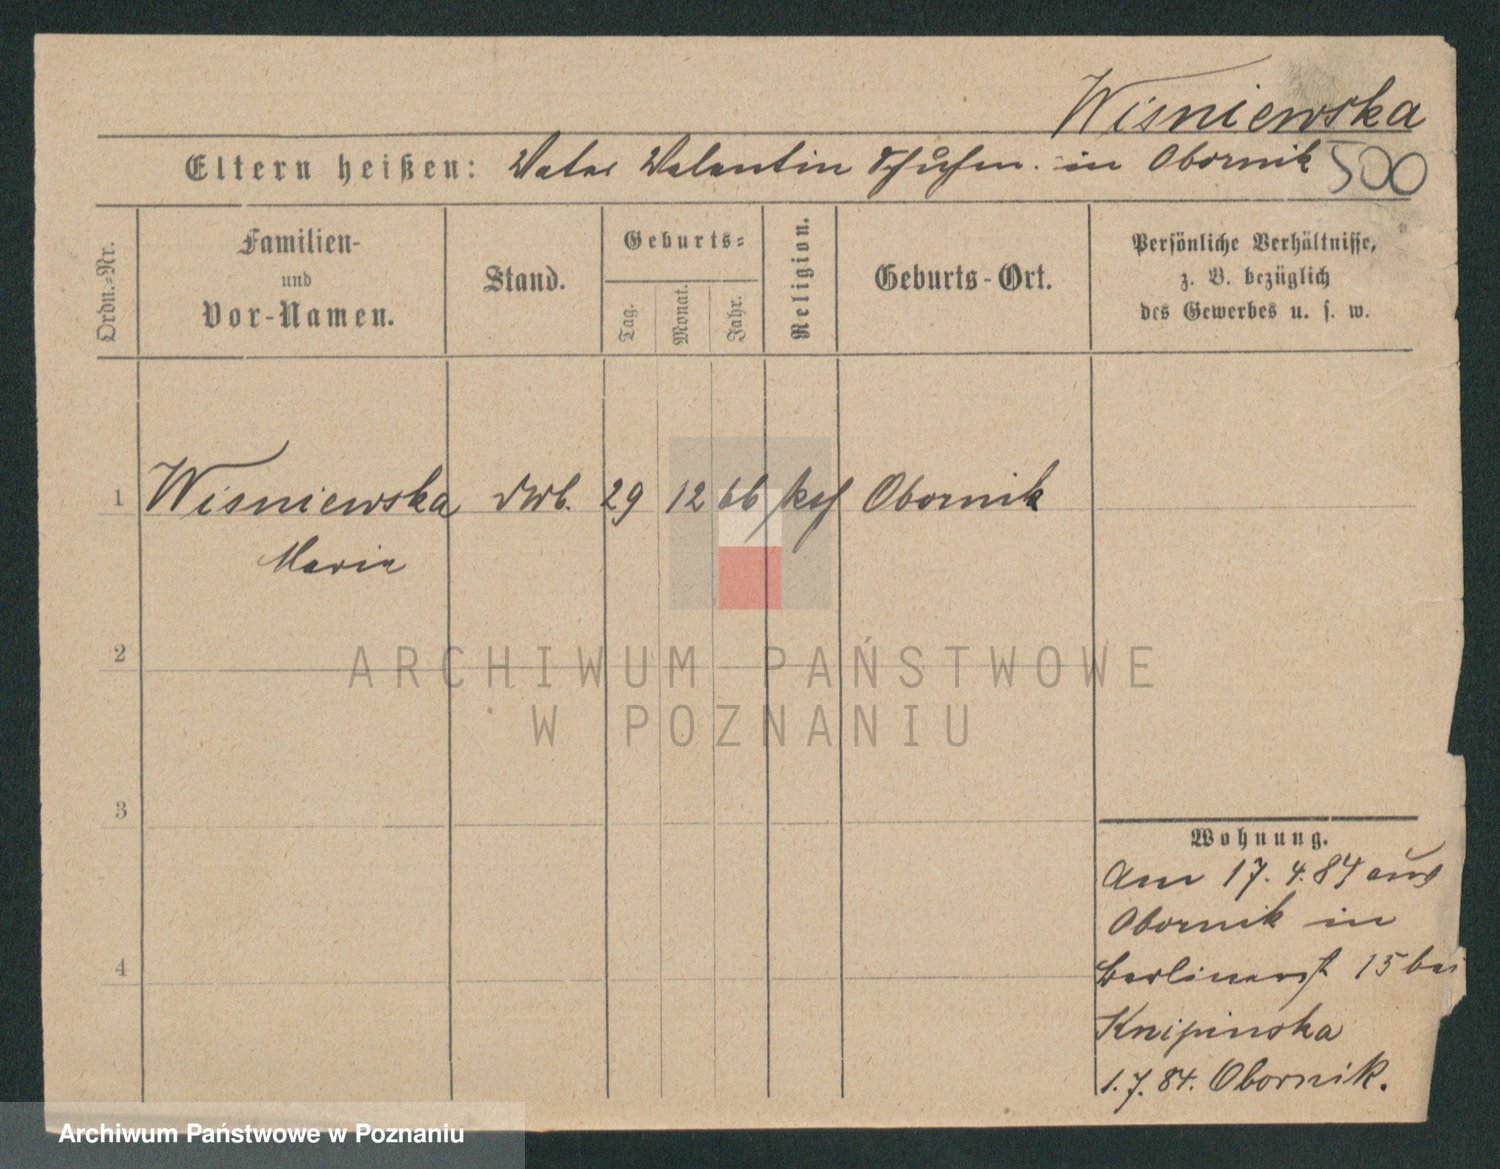 Wisniewska
Eltern heißen: Vater Valentin Schuhm. in Obornik
500
Ordn.-Nr.
Familien-
und
Vor-Namen.
Stand.
Geburts-
Tag.
Monat.
Jahr.
Religion.
Geburts-Ort.
Persönliche Verhältnisse,
z. B. bezüglich
des Gewerbes u. s. w.
1 Wisniewska 29 12 66 kath Obornik
Maria
2
ARCHIWUM PAŃSTWOWE
W POZNANIU
3
4
Wohnung.
Am 17. 4. 84 aus
Obornik in
Berlinerst 15 bei
Knipinska
1. 7. 84. Obornik.
Archiwum Państwowe w Poznaniu